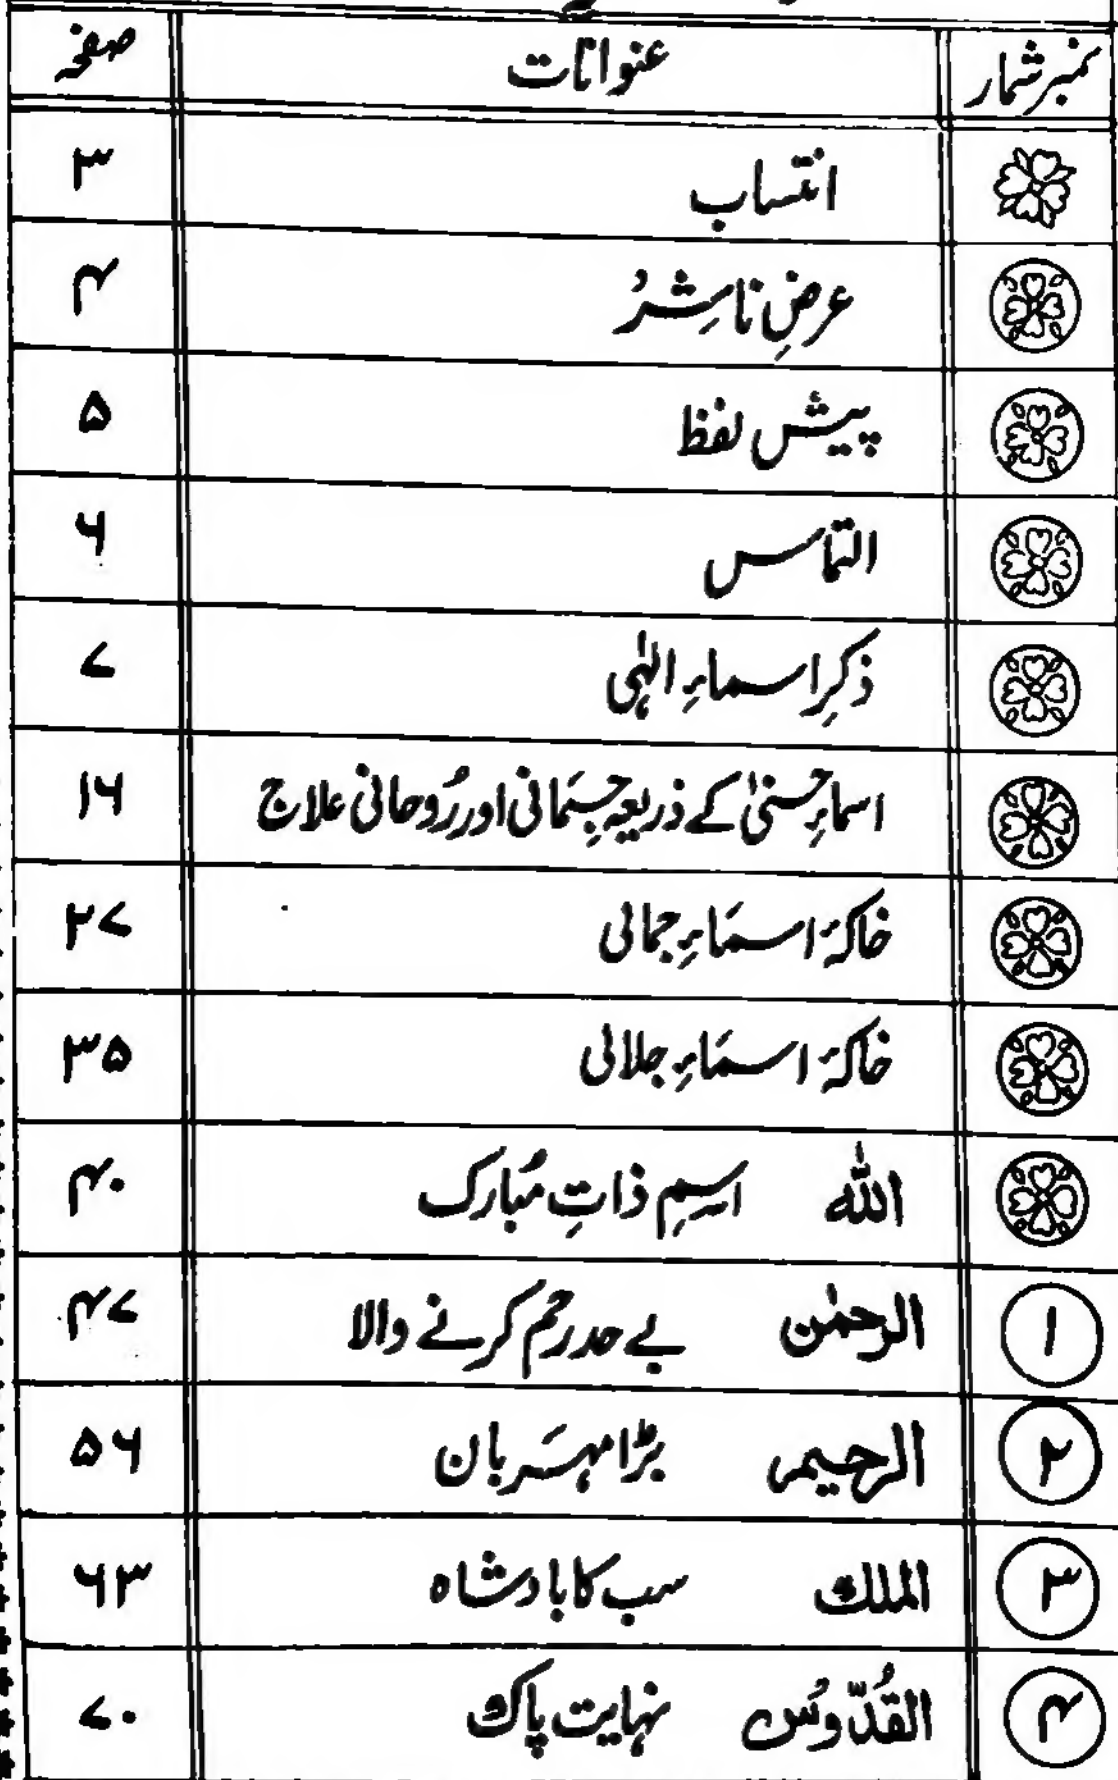 نمبر شمار عنوانات صفحہ
انتساب ۳
عرضِ ناشِرُ ۴
پیش لفظ ۵
التماس ۶
ذکرِ اسماءِ الٰہی ۷
اسماءِ حسنیٰ کے ذریعہ جسمَانی اور رُوحانی علاج ۱۶
خاکۂ اسمَاءِ جمالی ۲۷
خاکۂ اسمَاءِ جلالی ۳۵
اللہ اسمِ ذاتِ مُبارک ۴۰
۱ الرحمٰن بے حد رحم کرنے والا ۴۷
۲ الرحیم بڑا مہرَبان ۵۶
۳ الملک سب کا بادشاہ ۶۳
۴ القُدّوسُ نہایت پاک ۷۰